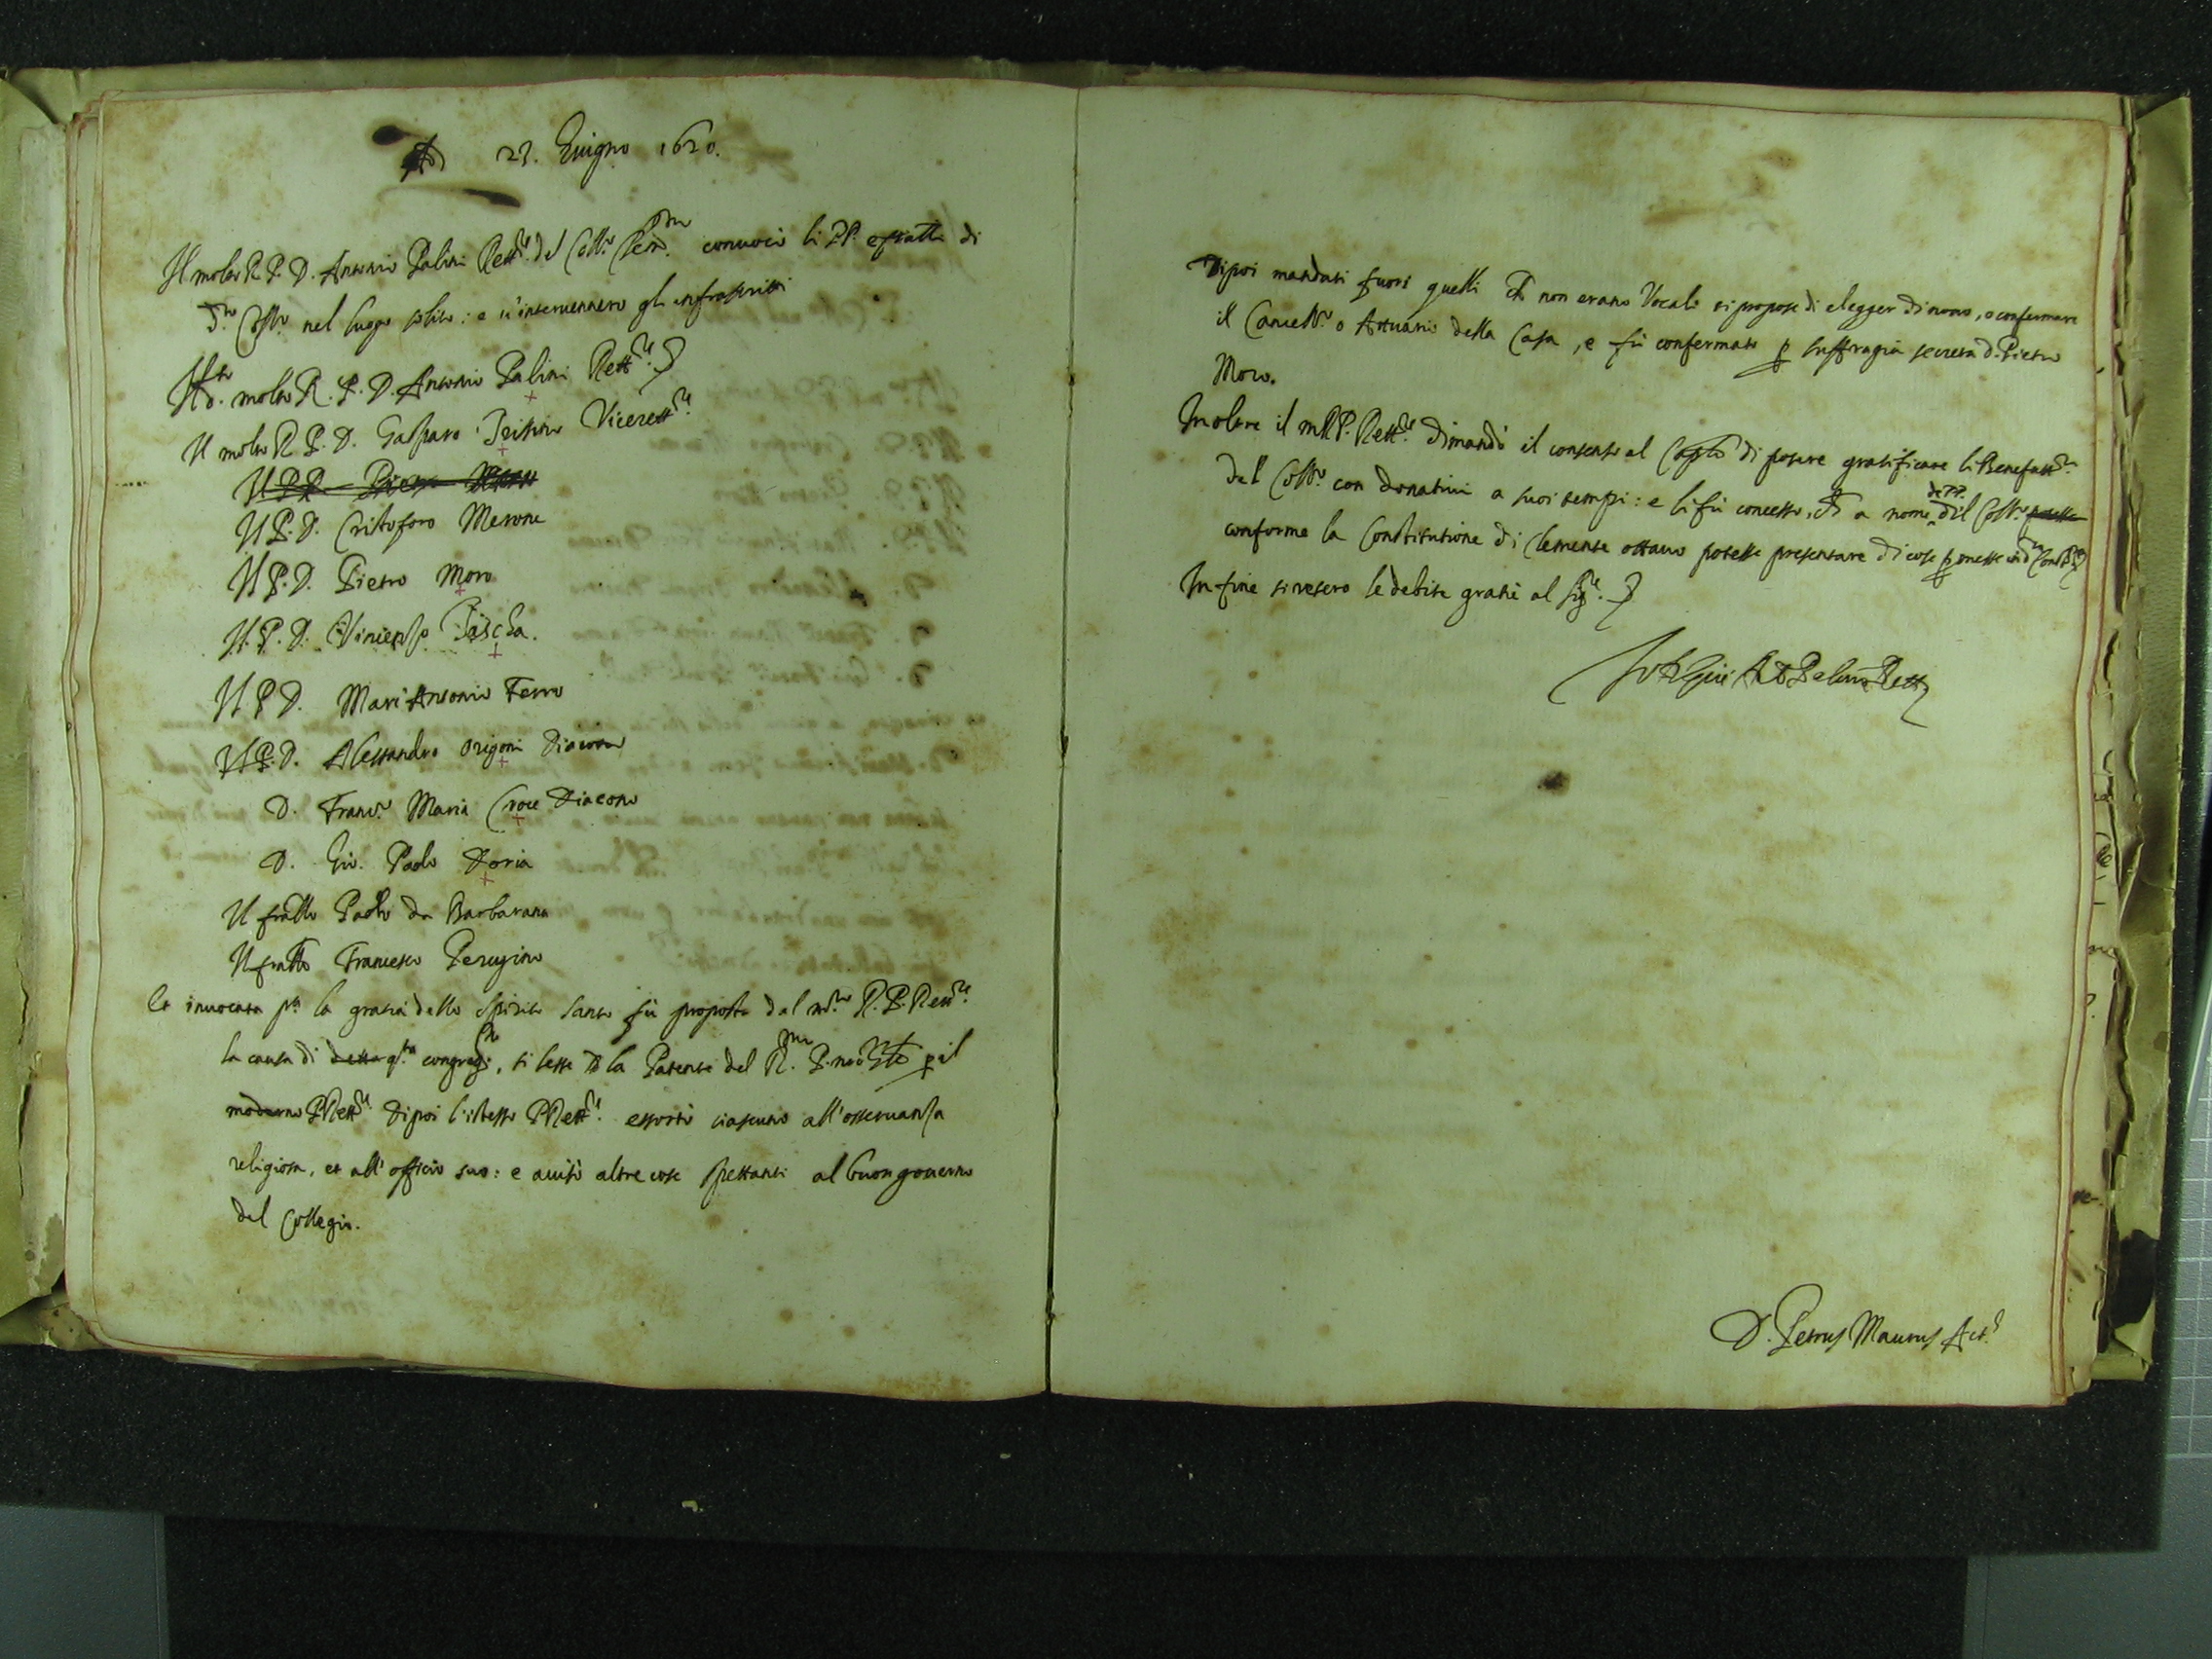 23. Giugno 1620.
Il molto R. P. D. Antonio Palini Rett.re del Coll.o Clem. convocò li PP. e fratelli di
d.to Coll.o nel luogo solito: e u'intervennero gl'infrascritti
Il d.to molto R. P. D. Antonio Palini Rett.re
Il molto R. P. D. Gasparo Trissino Vicerett.re
Il P. D. Pietro Moro
Il P. D. Cristoforo Merone
Il P. D. Pietro Moro
Il P. D. Vincenzo Pascha.
Il P. D. Marc'Antonio Ferro
Il P. D. Alessandro Origoni Diacono
D. Franc.o Maria Croce Diacono
D. Gio. Paolo Doria
Il frallo Paolo da Barbarano
Il frallo Francesco Perugino
Et invocata p.a la gratia dello Spirito Santo fù proposta dal m.to R. P. Rett.re
la causa di detta q.ta congreg.ne, si lesse la Patente del R.mo P. nro p il
moderno P Rett.re Dipoi l'istesso P Rett.re essortò ciascuno all'osservanza
religiosa, et all'officio suo: e avisò altre cose spettanti al buon governo
del Collegio.
Dipoi mandati fuori quelli che non erano Vocali si propose di elegger di novo, o confermare
il Cancell.ro o Attuario della Casa, e fù confermato p suffragia secreta d. Pietro
Moro.
Inoltre il m R P. Rett.re dimandò il consenso al Caplo di potere gratificare li Benefatt.ri
del Coll.o con donativi a suoi tempi: e li fù concesso, che a nome de PP. del Coll.o potesse
conforme la Constitutione di Clemente ottavo potesse presentare di cose pmesse in d.ta Const.ne
In fine si resero le debite gratie al Sig.re
D. Petrus Maurus Act.s